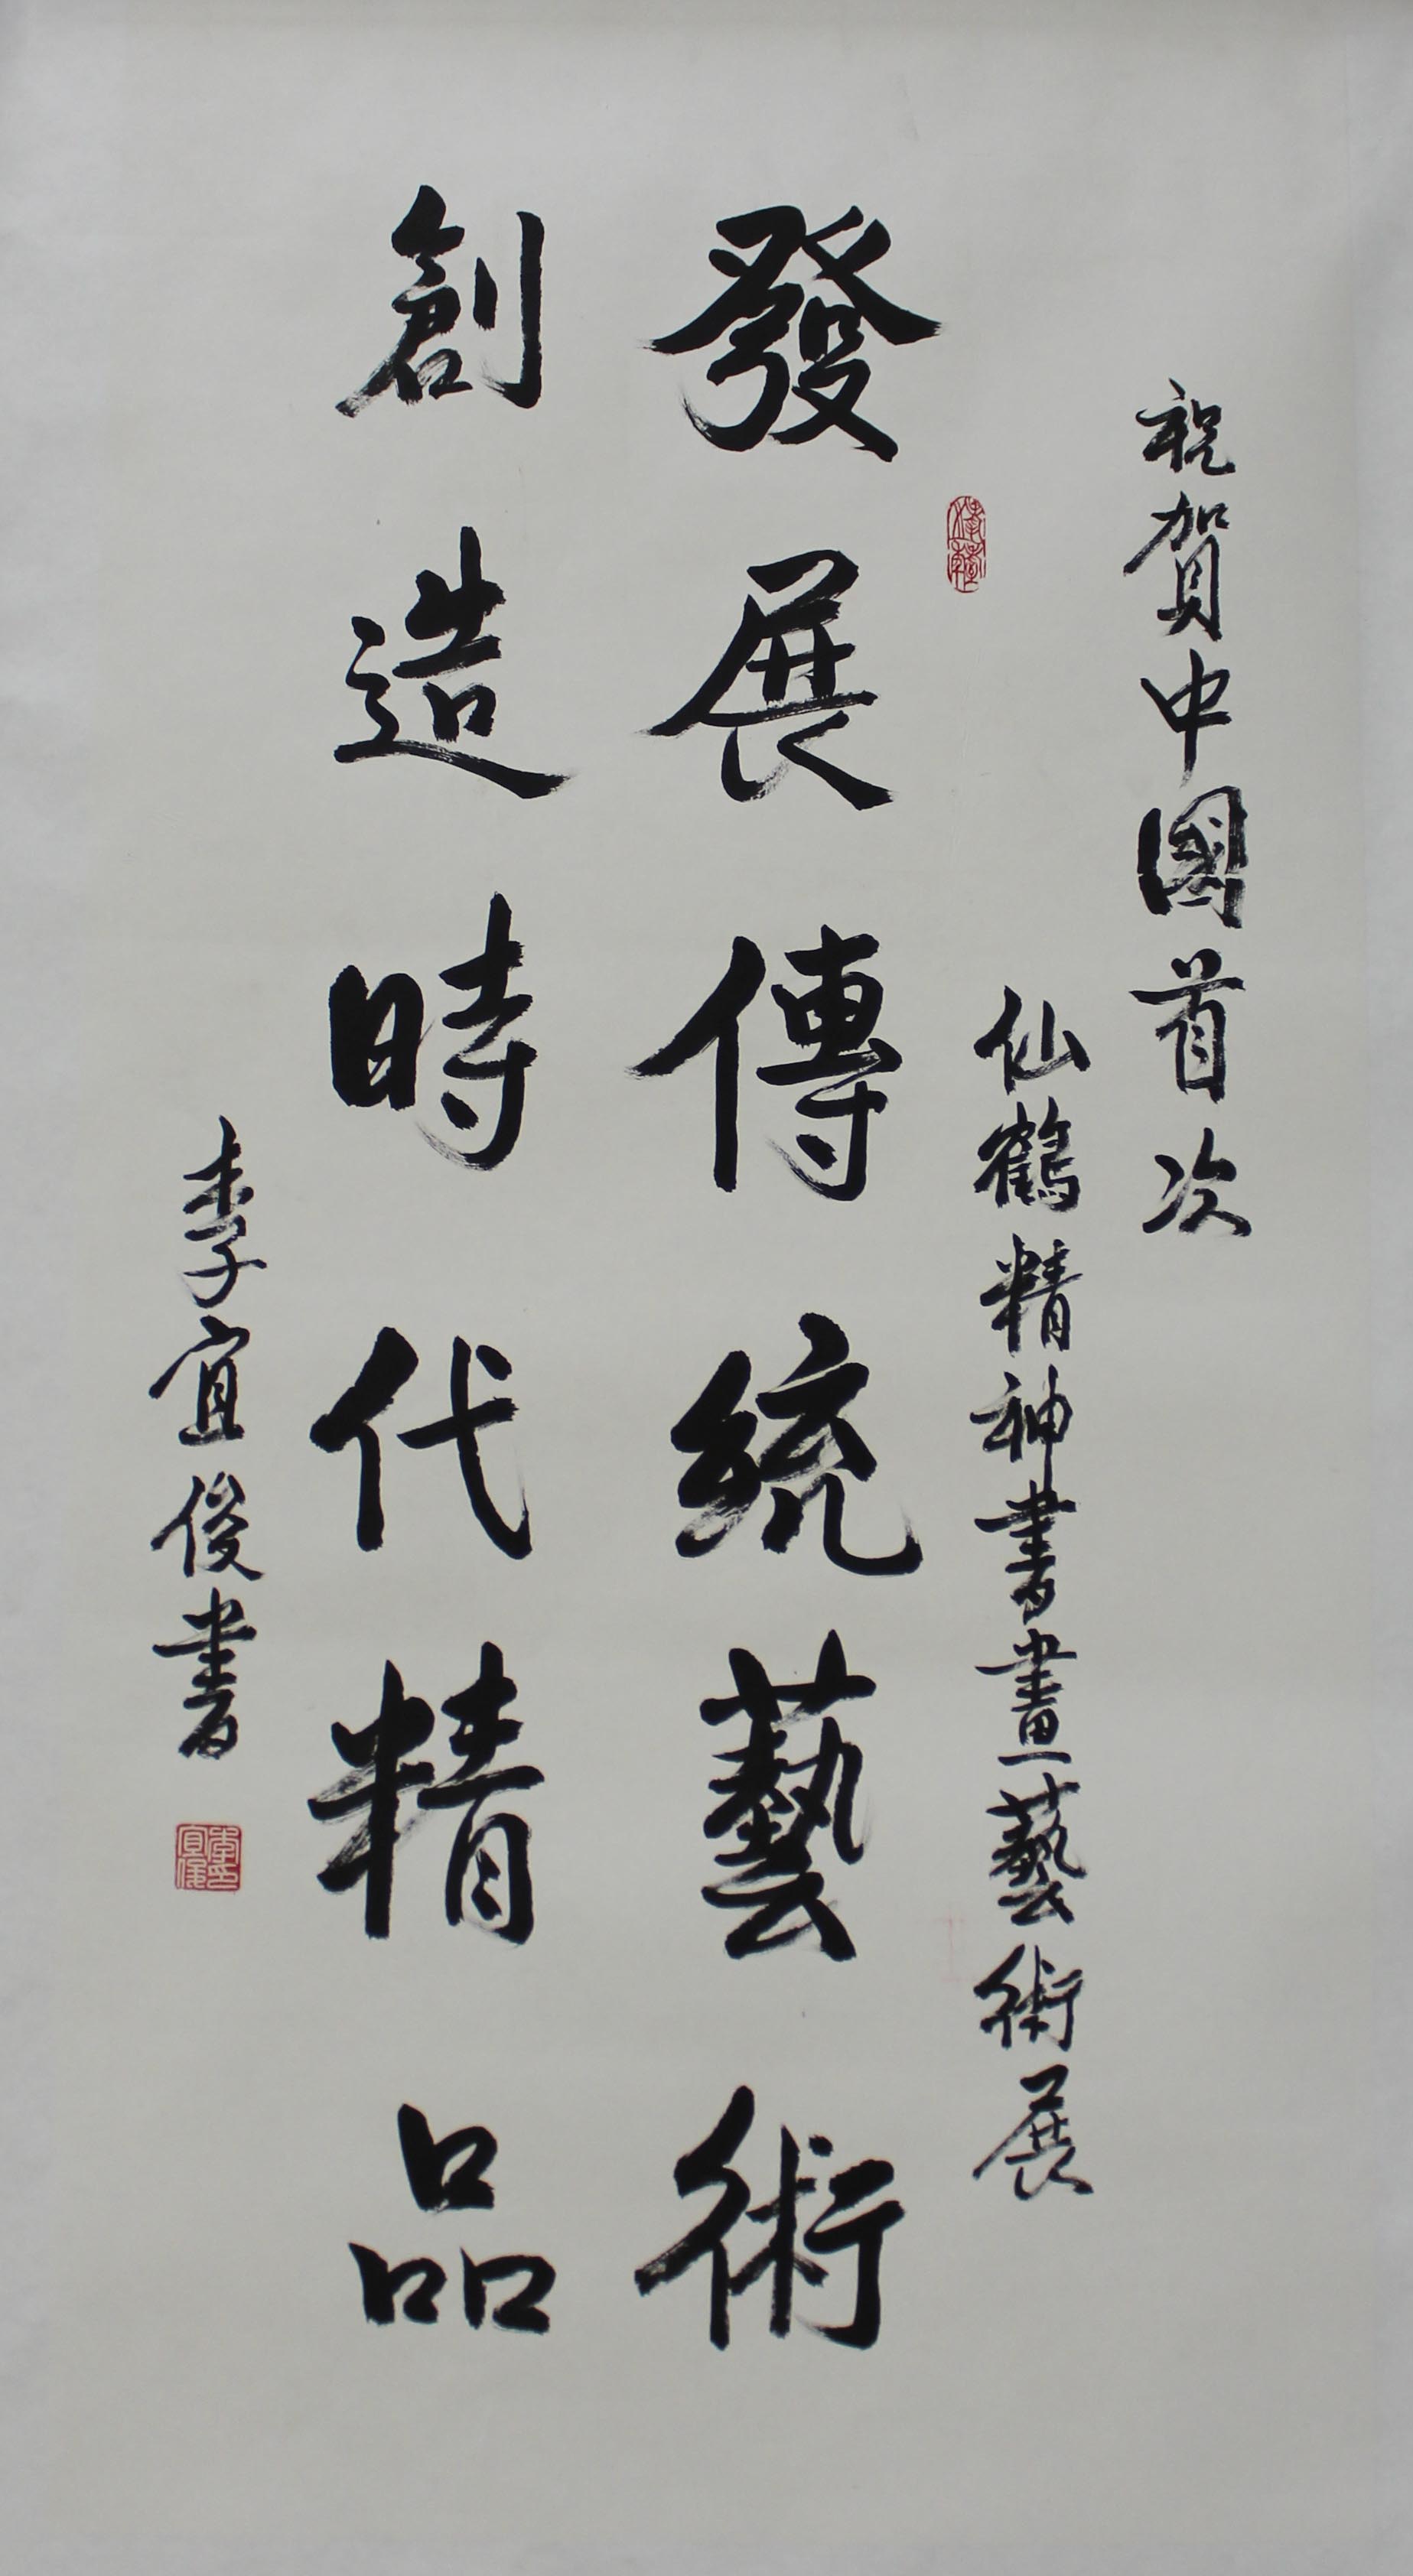 祝賀中國首次
仙鶴精神書畫藝術展
發展傳統藝術
創造時代精品
李宜俊書